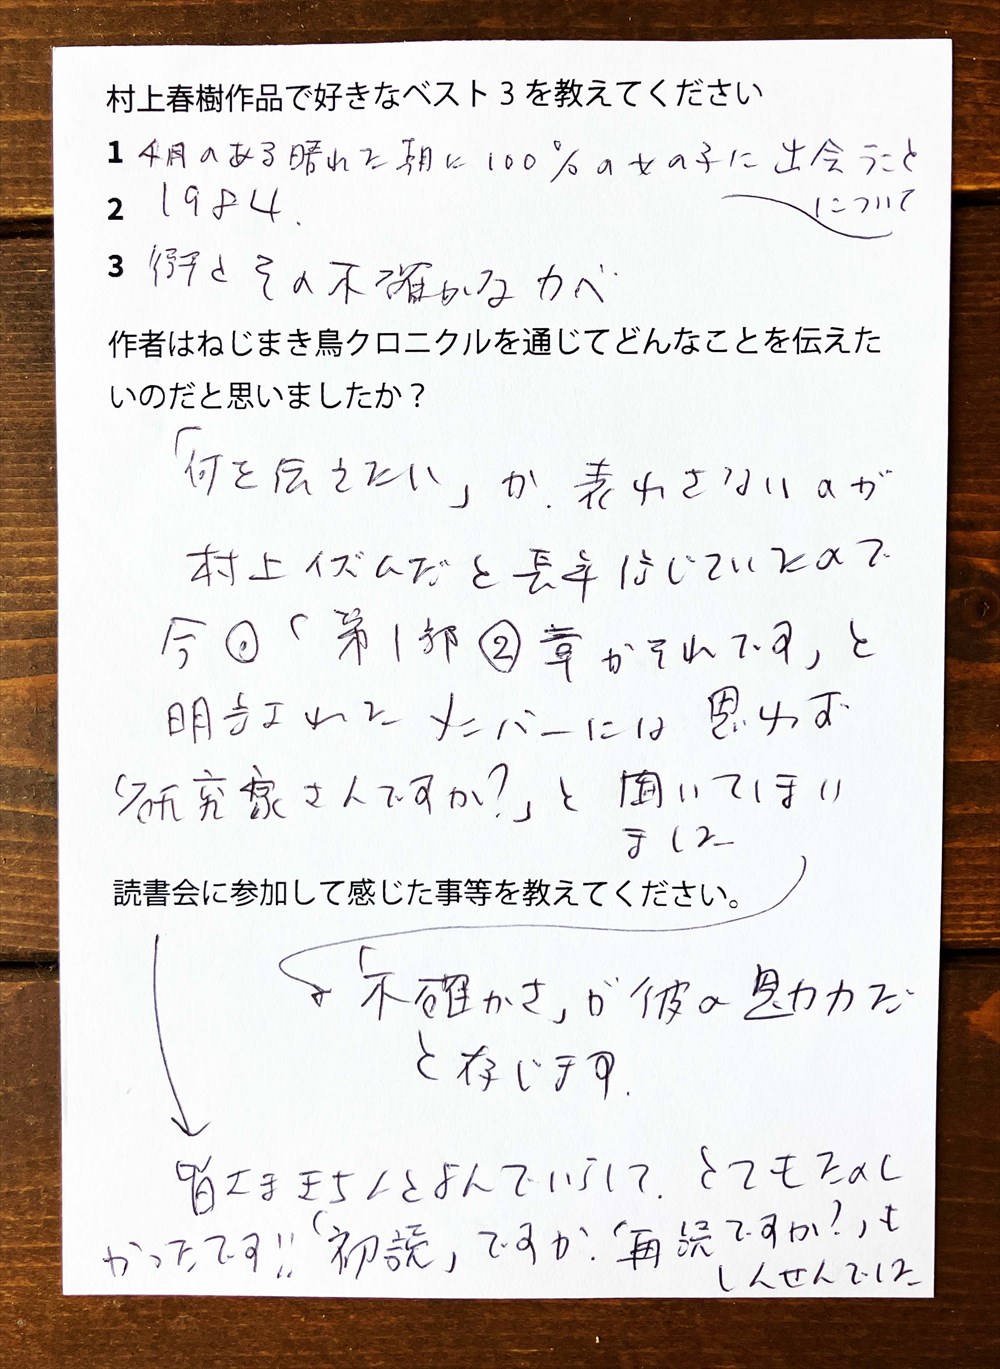 村上春樹作品で好きなベスト3を教えてください
1 4月のある晴れた朝に100%の女の子に出会うこと
について
2 1984.
3 街とその不確かなカベ
作者はねじまき鳥クロニクルを通じてどんなことを伝えた
いのだと思いましたか？
「何を伝えたい」か、表わさないのが
村上イズムだと長年信じていたので
今回「第1部②章がそれです」と
明言された メンバーには 思わず
「研究家さんですか?」と 聞いてしまい
ました
読書会に参加して感じた事等を教えてください。
「不確かさ」が彼の魅力だ
と存じます.
皆さまきちんとよんでいらして、とてもたのし
かったです!!「初読」ですか、「再読ですか?」も
しんせんでした